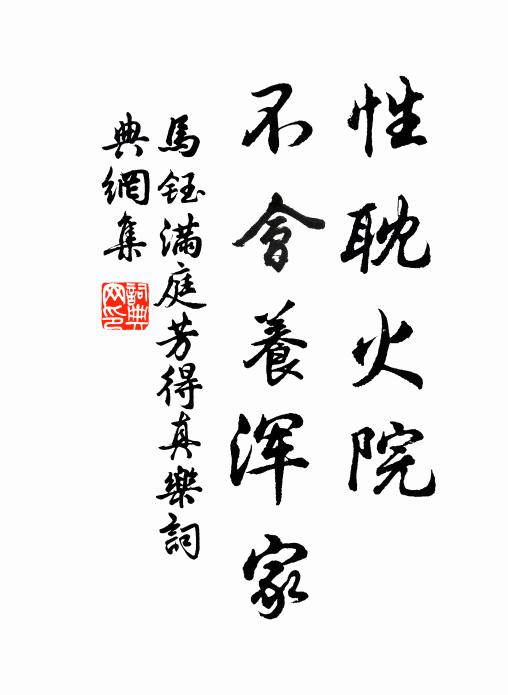 性耽火院
不會養渾家
馬鈺满庭芳得真樂詞
典網集
詞典网印